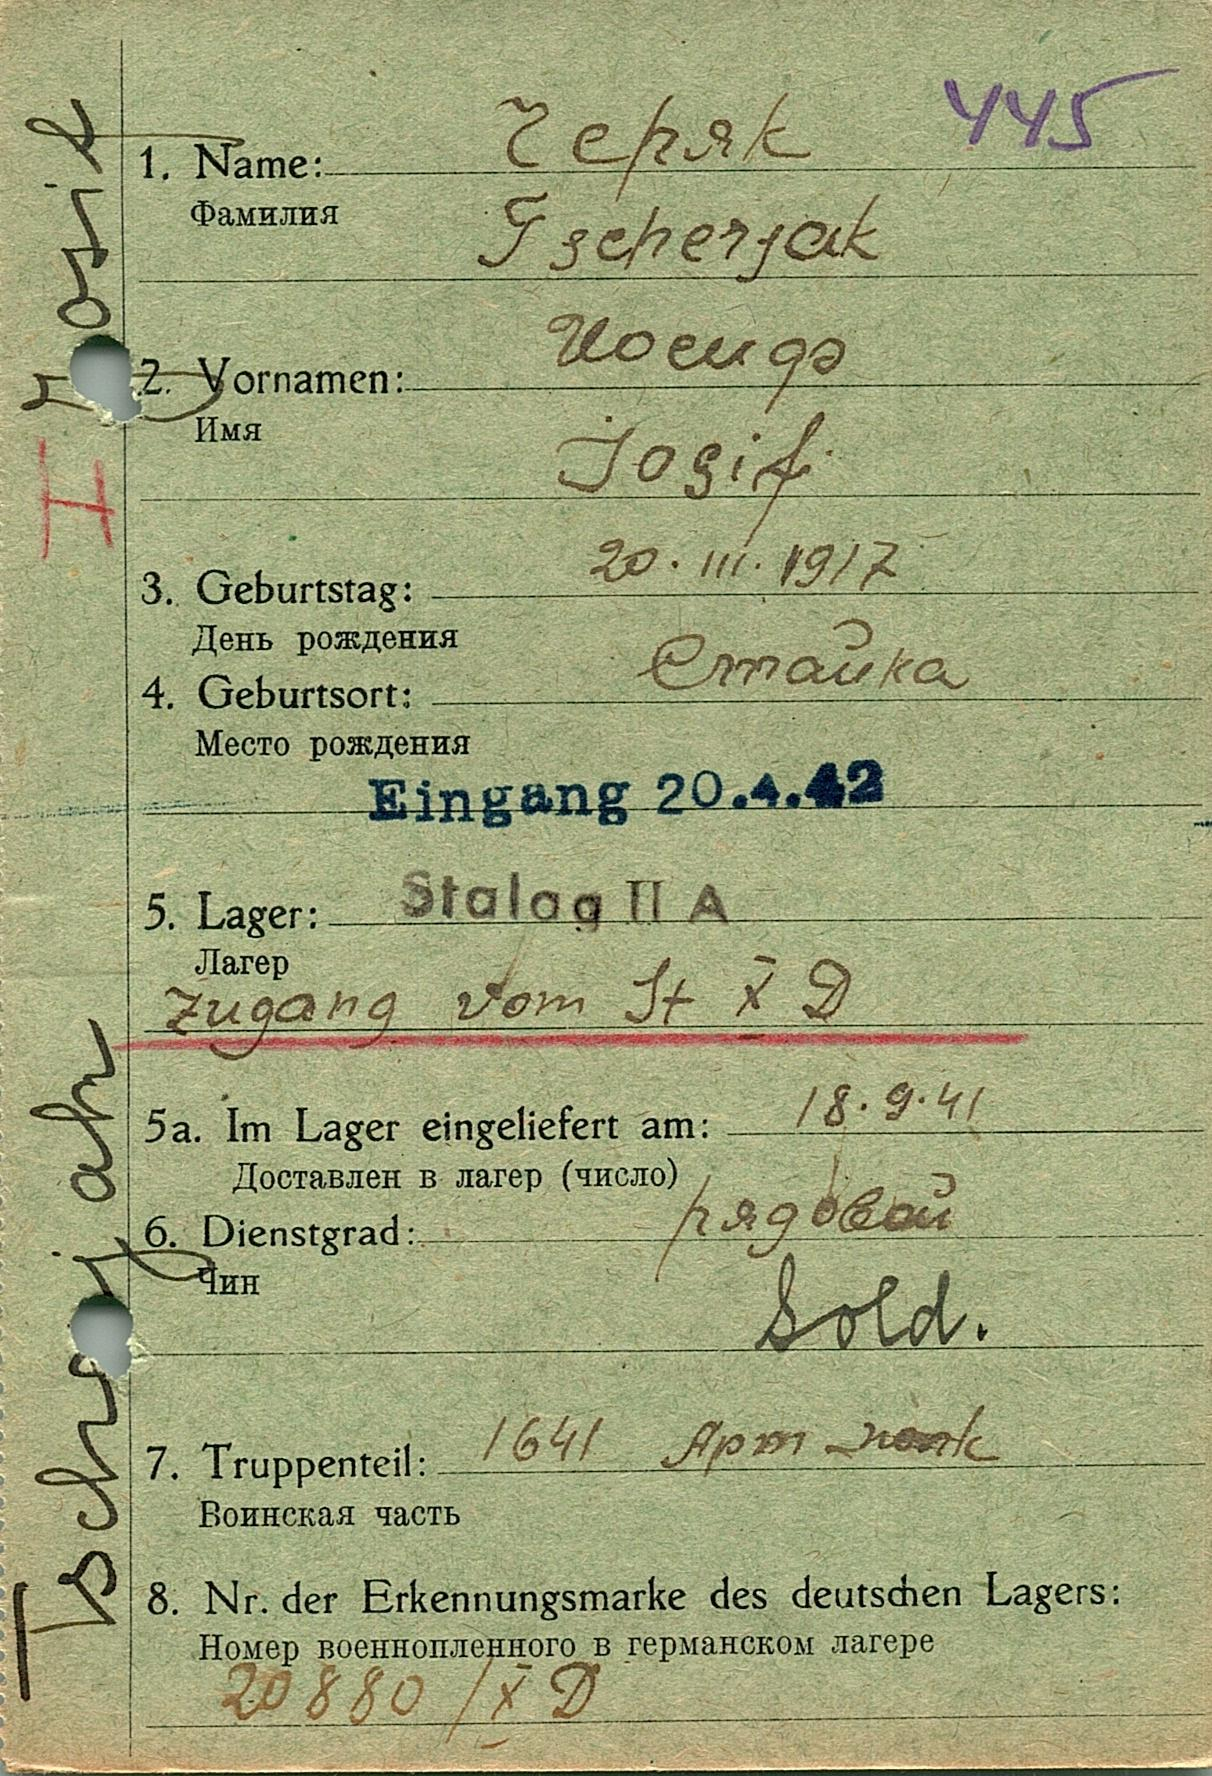 445
Черяк
1. Name:
Фамилия
Tscherjak
Иосиф
2. Vornamen:
Имя
Josif
20.III.1917
3. Geburtstag:
День рождения
Стайка
4. Geburtsort:
Место рождения
Eingang 20.4.42
5. Lager: Stalag II A
Лагер
Zugang vom St X D
5a. Im Lager eingeliefert am: 18.9.41
Доставлен в лагер (число)
6. Dienstgrad: рядовой
Чин
Sold.
7. Truppenteil: 1641 Арт полк
Воинская часть
8. Nr. der Erkennungsmarke des deutschen Lagers:
Номер военнопленного в германском лагере
20880/X D
I